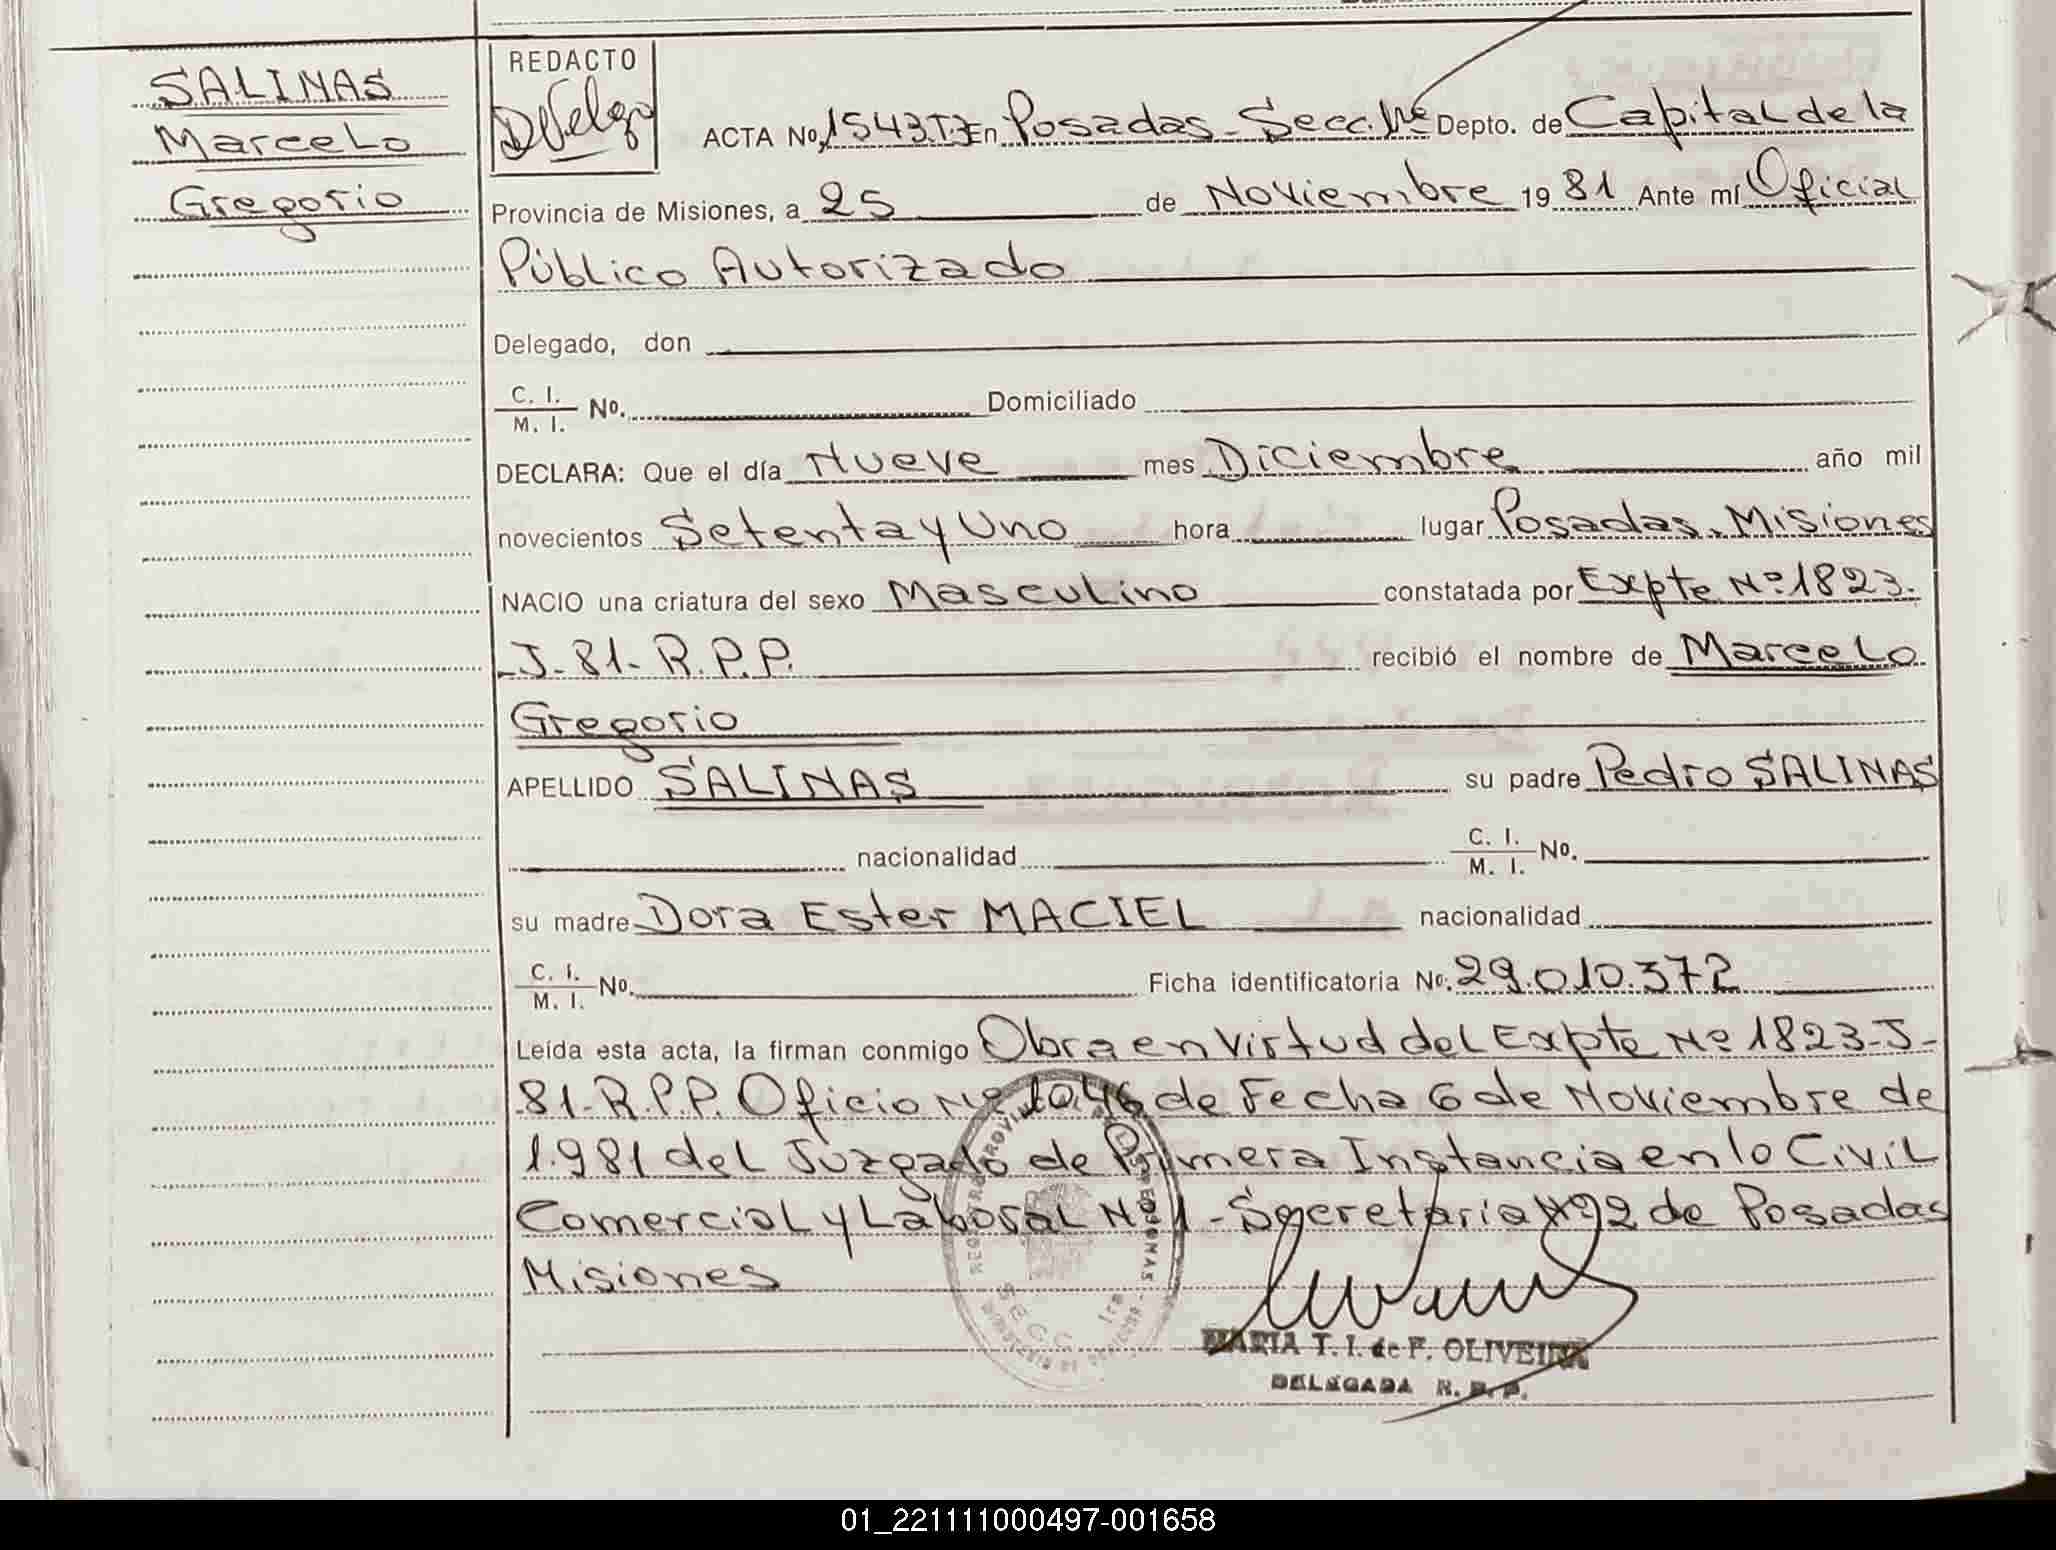 SALINAS
Marcelo
Gregorio
REDACTO
ACTA No. 1543 T.I En Posadas - Secc. 1ra Depto. de Capital de la
Provincia de Misiones, a 25 de Noviembre 19 81 Ante mí Oficial
Público Autorizado
Delegado, don
C. I.
M. I. No. Domiciliado
DECLARA: Que el día Nueve mes Diciembre año mil
novecientos Setenta y Uno hora lugar Posadas, Misiones
NACIO una criatura del sexo Masculino constatada por Expte Nº 1823.
-J-81-R.P.P. recibió el nombre de Marcelo
Gregorio
APELLIDO SALINAS su padre Pedro SALINAS
nacionalidad C. I.
M. I. No.
su madre Dora Ester MACIEL nacionalidad
C. I.
M. I. No. Ficha identificatoria No. 29.010.372
Leída esta acta, la firman conmigo Obra en Virtud del Expte Nº 1823-J-
81-R.P.P. Oficio Nº 1046 de Fecha 6 de Noviembre de
1.981 del Juzgado de Primera Instancia en lo Civil
Comercial y Laboral Nº 1 - Secretaria Nº 2 de Posadas
Misiones
MARIA T. I. de F. OLIVEIRA
DELEGADA R. P. P.
01_221111000497-001658